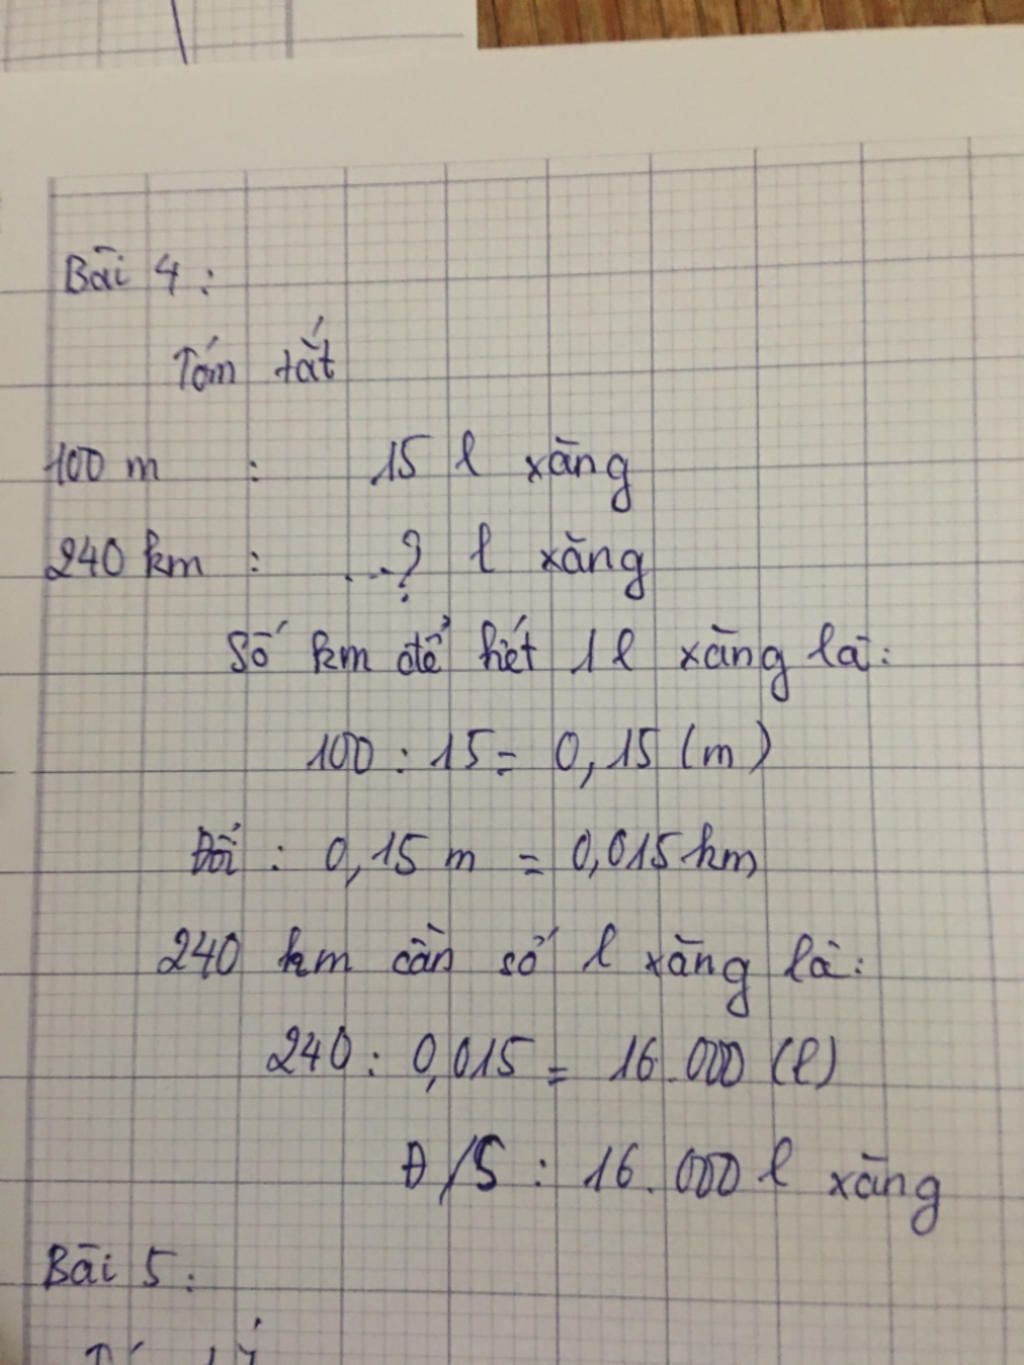 Bài 4:
Tóm tắt
100 m : 15 l xăng
240 km : ...? l xăng
Số km để hết 1 l xăng là:
100 : 15 = 0,15 (m)
Đổi : 0,15 m = 0,015 km
240 km cần số l xăng là:
240 : 0,015 = 16.000 (l)
Đ/S : 16.000 l xăng
Bài 5: